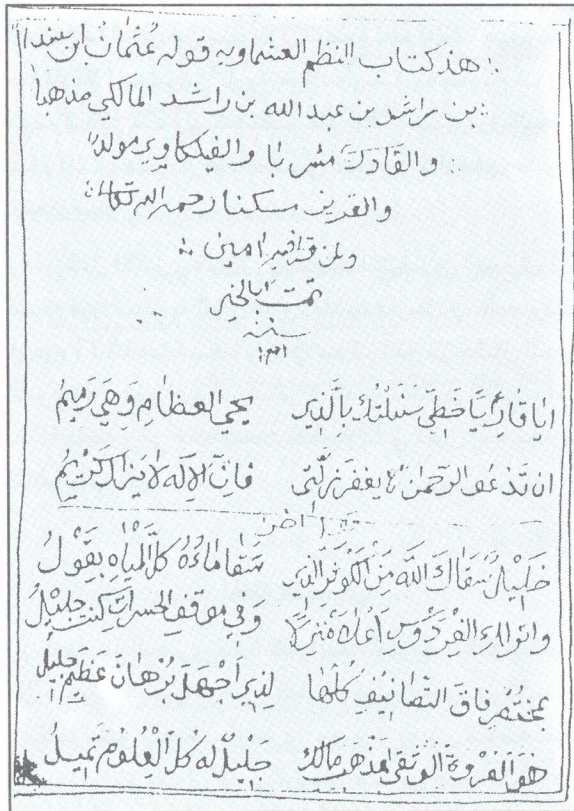 هذ كتاب النظم العشماويه قوله عثمان ابن سندا
بن راشد بن عبد الله بن راشد المالكي مذهبا
والقادري مشربا والفيككاوير مولدا
والقدرين مسكنا رحمه الله تعالى
ولمن قرا فيه امين
تمت بالخير
سنة
ايا قارئا خطي سئلتك بالذير يحيي العظام وهي رميم
ان تدعو الرحمن يغفر زلتي فان الاله لا يزال كريم
خليل سقاك الله من الكوثر الذير سقا ماءه كل المياه يقول
وانزلك الفردوس اعلاه منزلا وفي موقف الحسرات كنت جليل
بمختصر فاق التصانيف كلها لذير اجهل برهان عظيم جليل
هو العروة الوثقى لمذهب مالك جليل له كل العلوم تميل